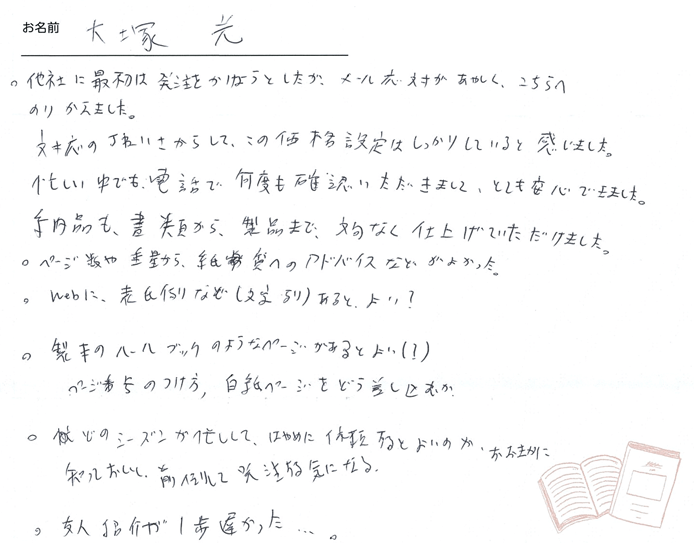 お名前 大塚 光
。他社に最初は発注をかけようとしたが、メール応対があやしく、こちらへ
のりかえました。
対応の丁ねいさからして、この価格設定はしっかりしていると感じました。
忙しい中でも、電話で何度も確認いただきまして、とても安心できました。
納品も、書類から、製品まで、文句なく仕上げていただけました。
。ページ数や重量から、紙質へのアドバイスなどがよかった。
。Webに、表紙例など(文字例)あると、よい?
。製本のルールブックのようなページがあるとよい(?)
ページ番号のつけ方、白紙ページをどう差し込むか
。どのシーズンが忙しして、はやめに依頼するとよいのか、おおまかに
知っておいて、前倒して発注する気になる。
。友人紹介が1歩遅かった…。